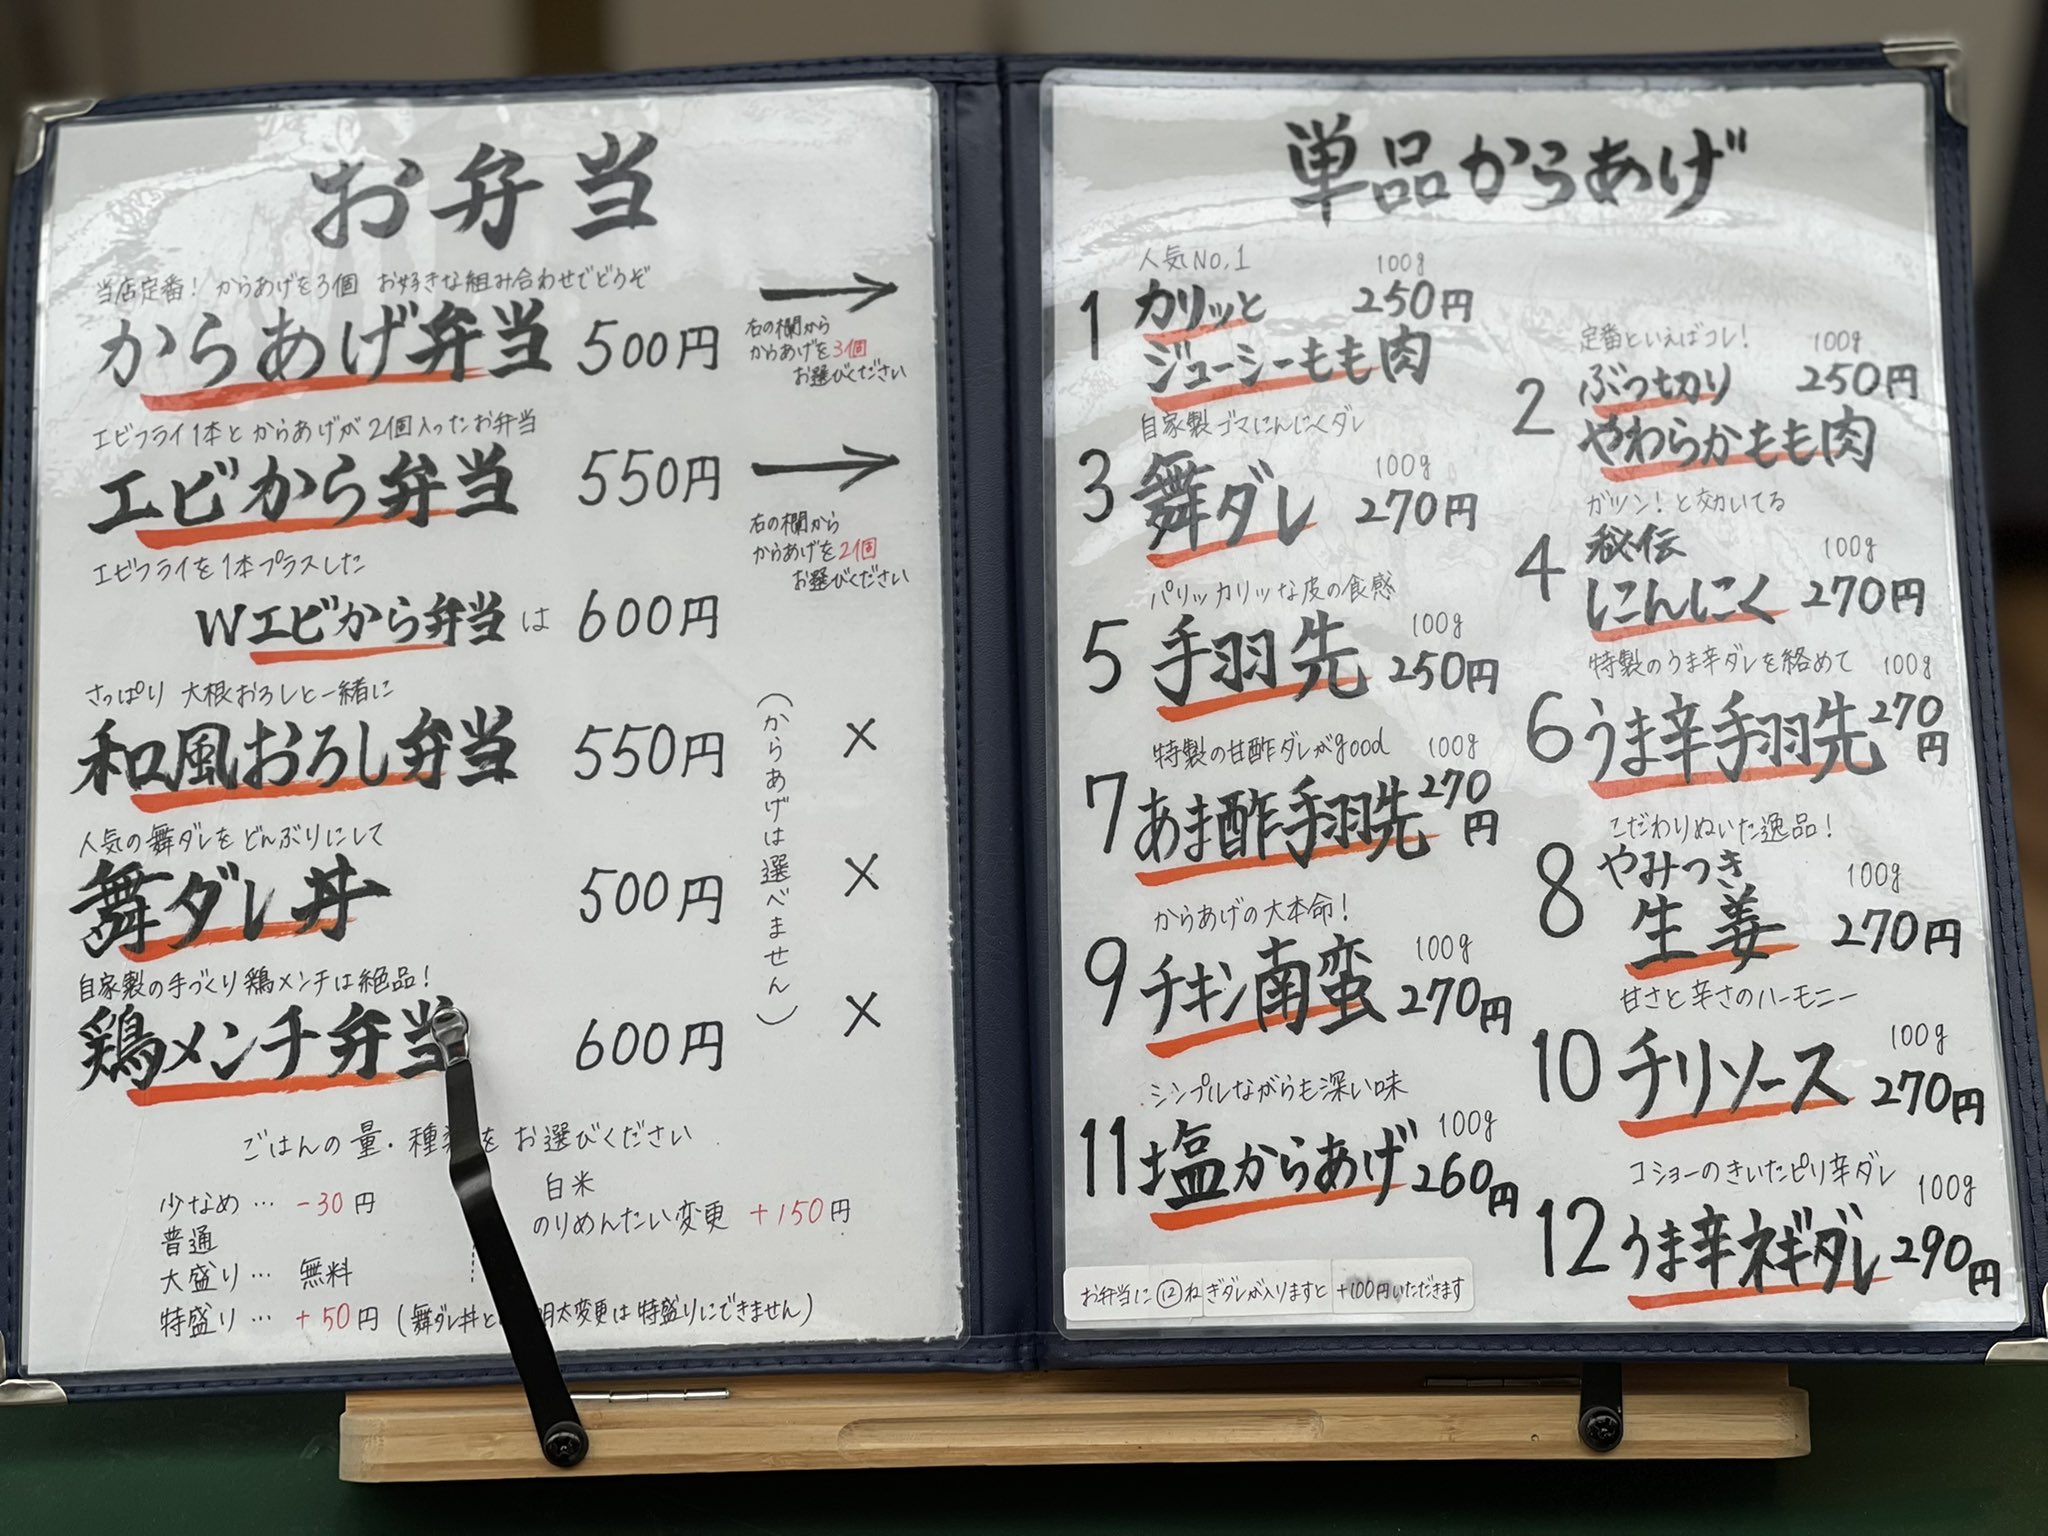 お弁当
当店定番！からあげを3個 お好きな組み合わせでどうぞ
からあげ弁当 500円
右の欄から
からあげを3個
お選びください
エビフライ1本とからあげが2個入ったお弁当
エビから弁当 550円
右の欄から
からあげを2個
お選びください
エビフライを1本プラスした
Wエビから弁当は 600円
さっぱり 大根おろしと一緒に
和風おろし弁当 550円 ×
人気の舞ダレをどんぶりにして
舞ダレ丼 500円 ×
自家製の手づくり鶏メンチは絶品！
鶏メンチ弁当 600円 ×
（からあげは選べません）
ごはんの量・種 をお選びください
少なめ… -30円
普通
大盛り… 無料
特盛り… +50円 (舞ダレ丼と 明太変更は特盛りにできません)
白米
のりめんたい変更 +150円
単品からあげ
人気No,1 100g
1 カリッと 250円
ジューシーもも肉
定番といえばコレ！ 100g
2 ぶつ切り 250円
やわらかもも肉
自家製ゴマにんにくダレ
100g
3 舞ダレ 270円
ガツン！と効いてる
4 秘伝 100g
にんにく 270円
パリッカリッな皮の食感
100g
5 手羽先 250円
特製のうま辛ダレを絡めて 100g
6 うま辛手羽先 270円
特製の甘酢ダレがgood 100g
7 あま酢手羽先 270円
こだわりぬいた逸品！
8 やみつき 100g
生姜 270円
からあげの大本命！
100g
9 チキン南蛮 270円
甘さと辛さのハーモニー
100g
10 チリソース 270円
シンプルながらも深い味
100g
11 塩からあげ 260円
コショーのきいたピリ辛ダレ 100g
12 うま辛ネギダレ 290円
お弁当に⑫ねぎダレが入りますと +100円いただきます